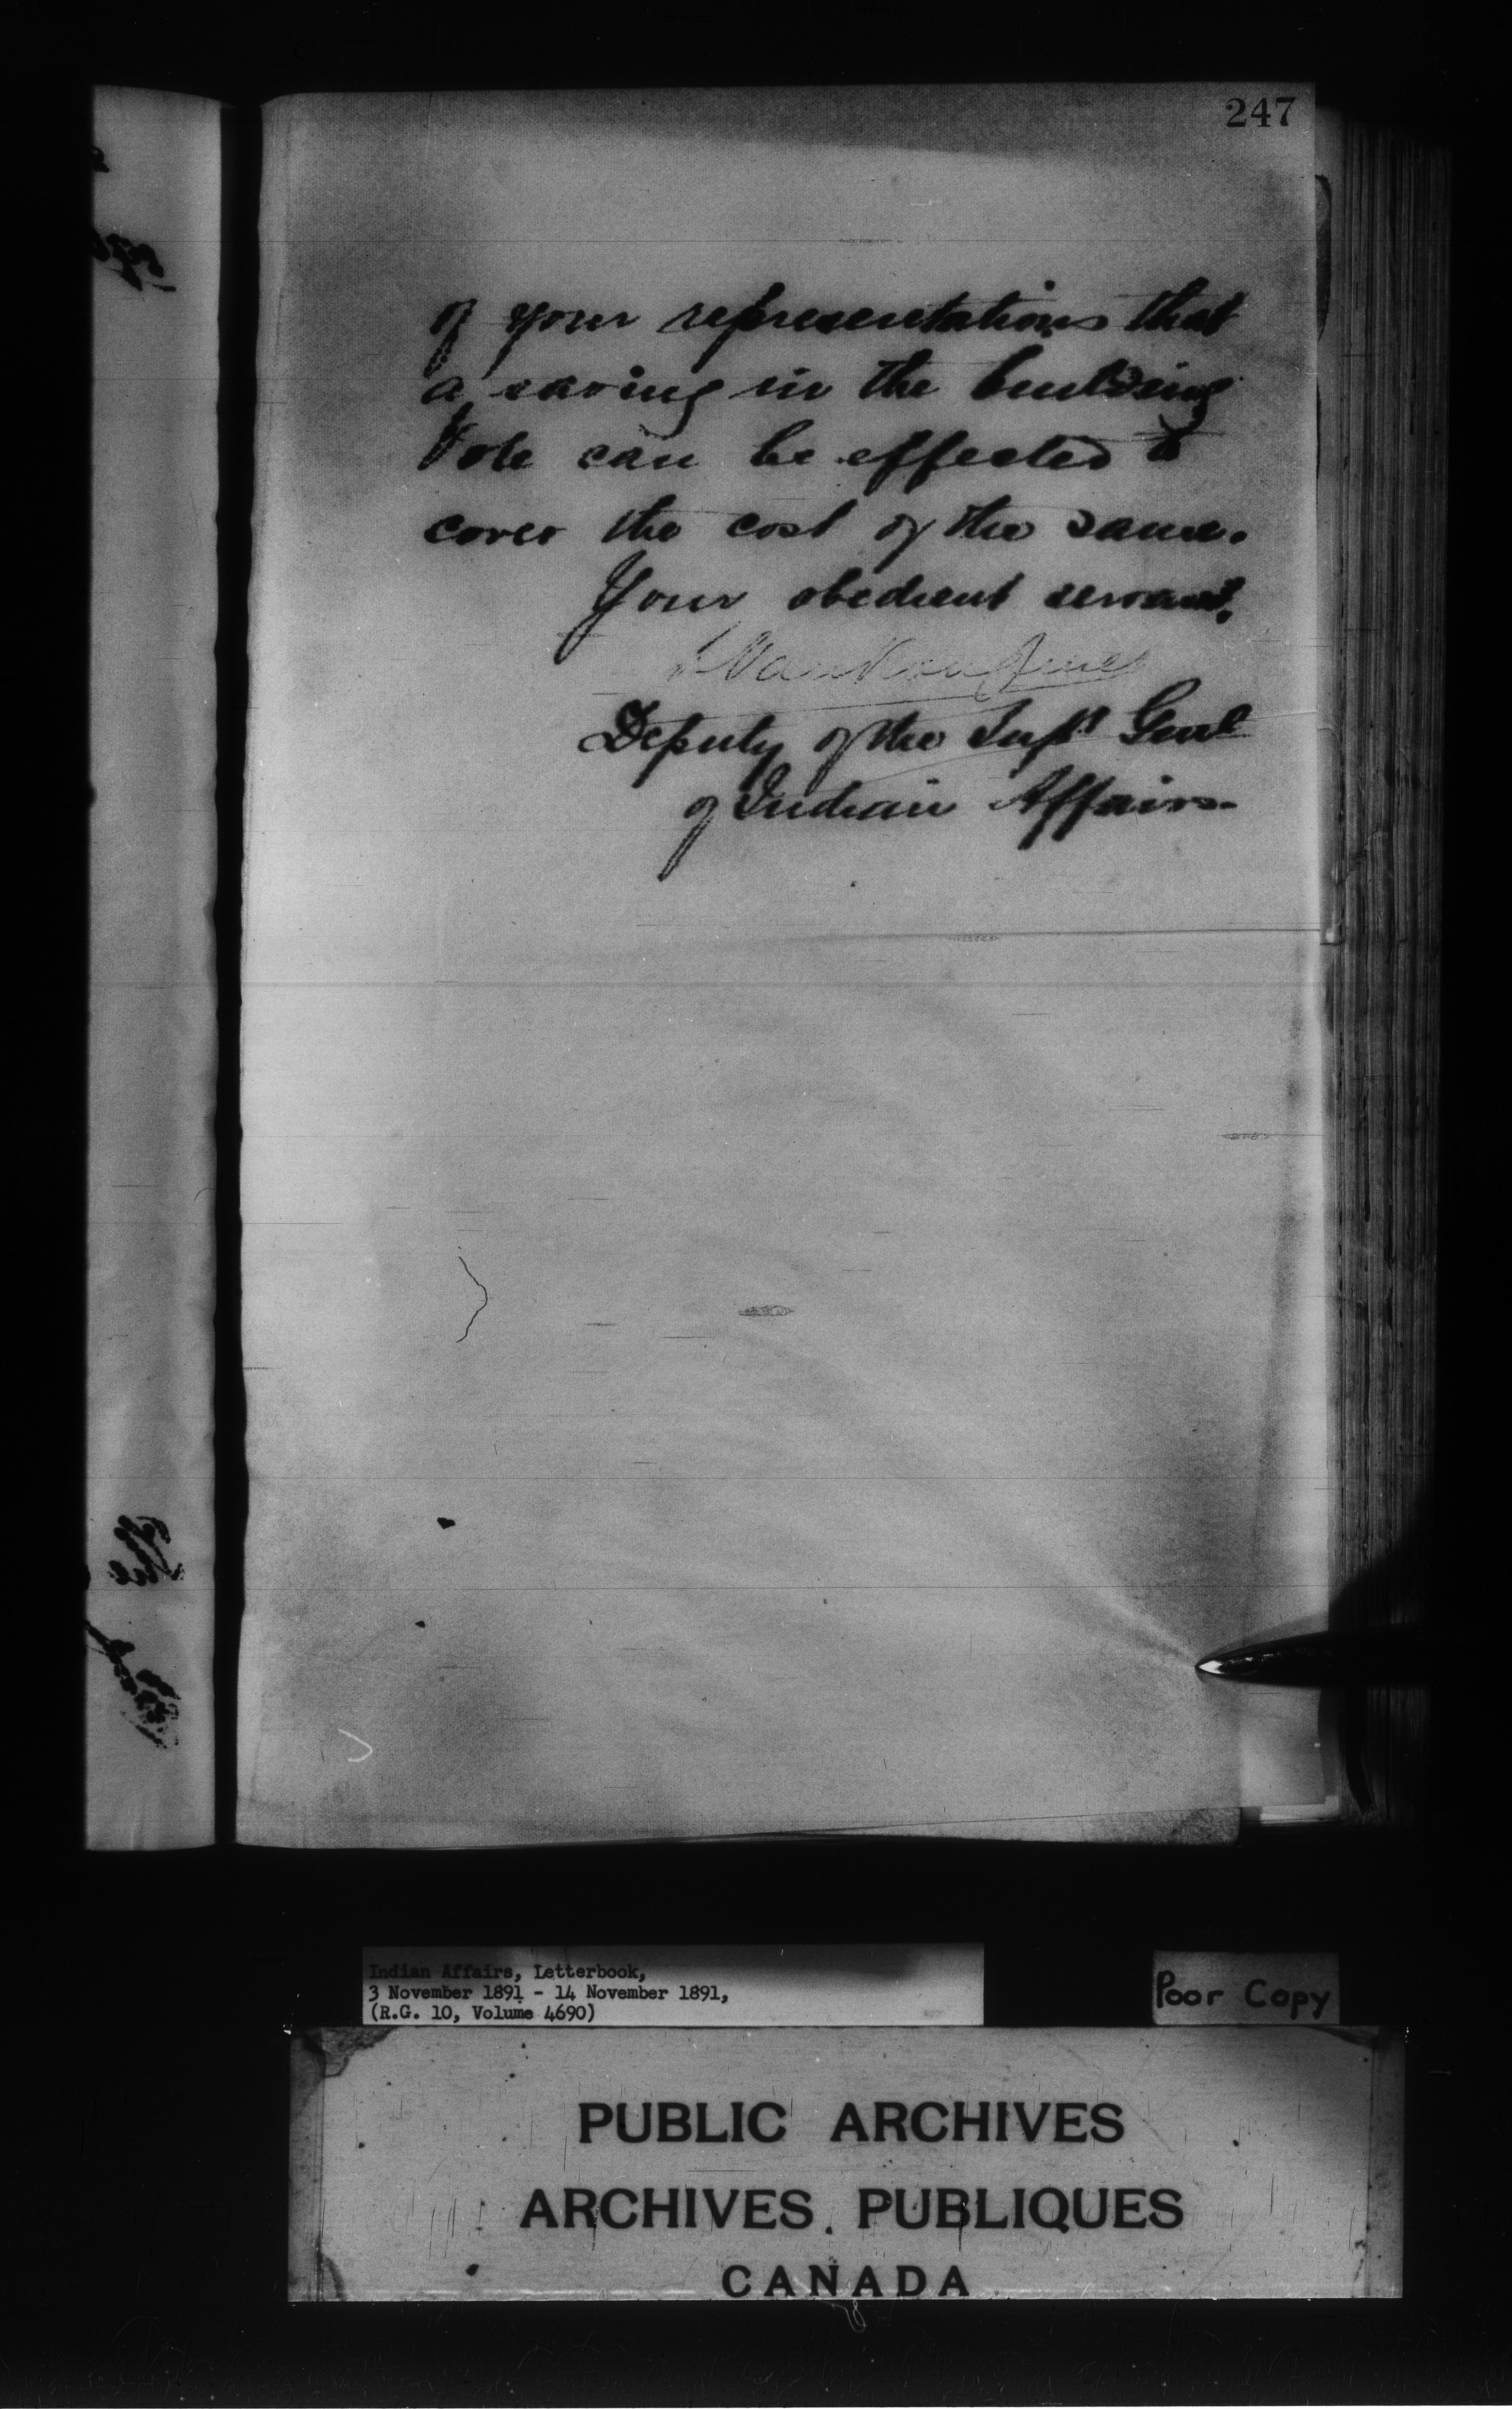 247
of your representations that
a saving in the building
Vote can be effected to
cover the cost of the same.
Your obedient servant,
L. VanKoughnet
Deputy of the Supt Genl
of Indian Affairs.
The
Indian Affairs, Letterbook,
3 November 1891 - 14 November 1891,
(R.G. 10, Volume 4690)
Poor Copy
PUBLIC ARCHIVES
ARCHIVES PUBLIQUES
CANADA